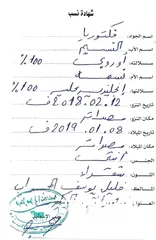 شهادة نسب
اسم الجواد: فكتوريا
اسم الأب: النسيم
سلالته: أوروبي 100%
اسم الأم: بسمة
سلالتها: إنجليزي 100%
تاريخ النزو: 2018.02.12 ف
مكان النزو: مصراتة
تاريخ الميلاد: 2019.01.08 ف
مكان الميلاد: مصراتة
الجنس: أنثى
اللون: شقراء
خليل يوسف